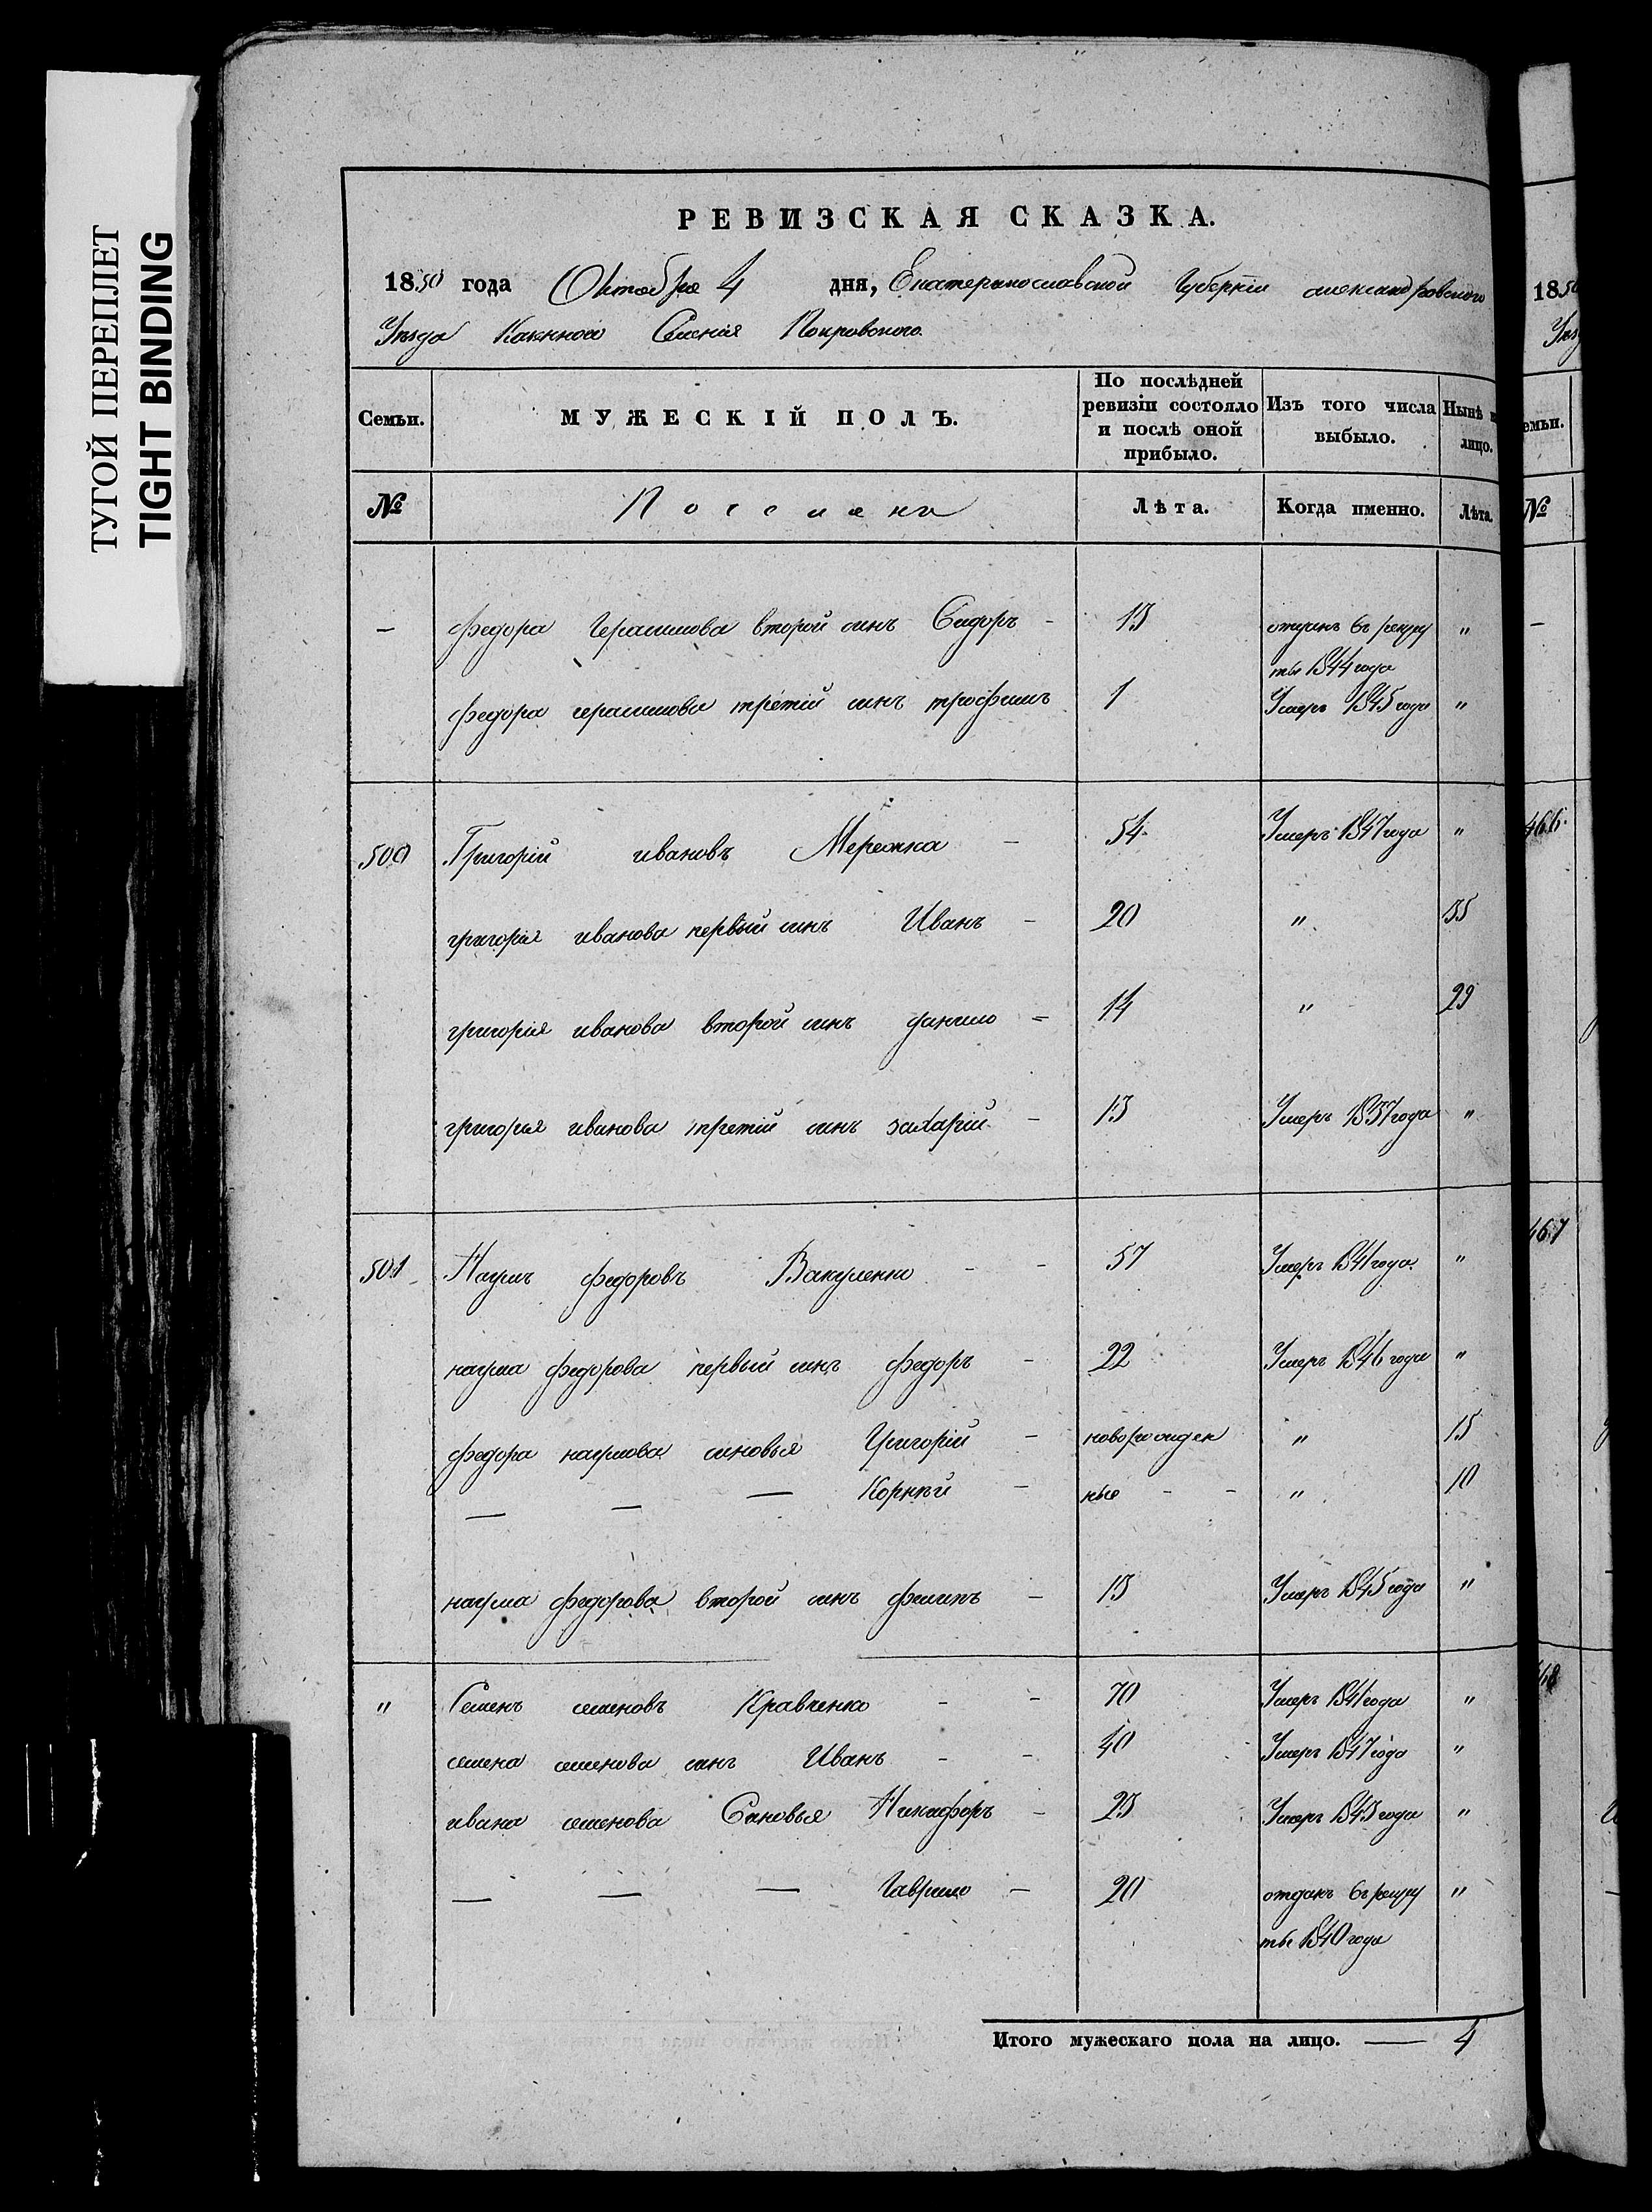 ТУГОЙ ПЕРЕПЛЕТ
TIGHT BINDING
РЕВИЗСКАЯ СКАЗКА.
1850 года Октября 4 дня, Екатеринославской Губерніи александровского
Уѣзда Казенного Селенія Покровского.
Семьи. МУЖЕСКІЙ ПОЛЪ. По послѣдней ревизіи состояло и послѣ оной прибыло. Изъ того числа выбыло. Нынѣ н лицо.
№ Поселяне Лѣта. Когда именно. Лѣта.
— федора Герасимова второй синъ Сидоръ - 13 отданъ въ рекру "
ты 1844 года
федора герасимова третій синъ трофимъ 1 Умеръ 1845 года "
500 Григорій ивановъ Мережка - 54 Умеръ 1847 года "
григорія иванова первый синъ Иванъ - 20 " 35
григорія иванова второй синъ данило - 14 " 29
григорія иванова третій синъ захарій - 13 Умеръ 1837 года "
501 Наумъ федоровъ Вакуленко - - 57 Умеръ 1841 года "
наума федорова первый синъ федоръ - 22 Умеръ 1846 года "
федора наумова синовья Григорій - новорожден " 15
— — — Корнѣй - ные - - " 10
наума федорова второй синъ филипъ - 13 Умеръ 1845 года "
" Семенъ семеновъ Кравченко - - 70 Умеръ 1841 года "
семена семенова синъ Иванъ - - 40 Умеръ 1847 года "
ивана семенова Синовья Никифоръ - 23 Умеръ 1843 года "
— — — Гаврило - 20 отданъ въ рекру "
ты 1840 года
Итого мужескаго пола на лицо. — 4
1850
Уѣз
емьи.
№
—
466.
467
468